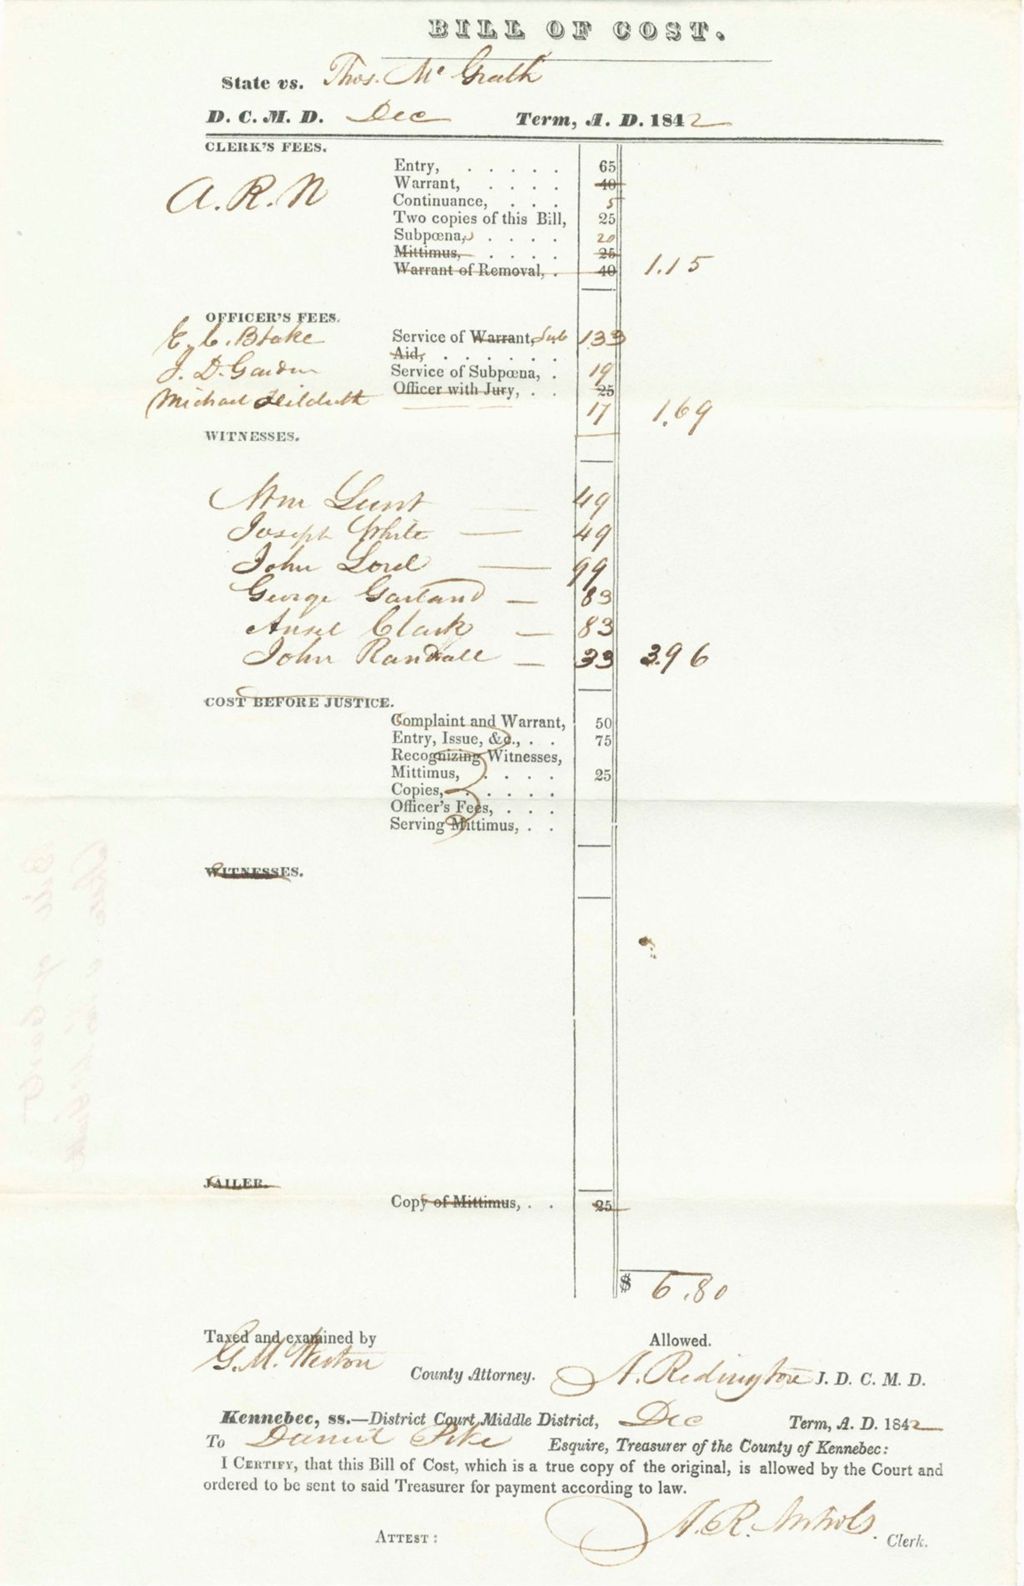 BILL OF COST.
State vs. Thos. Mc Grath
D. C. M. D. Dec Term, A. D. 1842
CLERK'S FEES.
A. R. N
Entry, . . . . . 65
Warrant, . . . . 40
Continuance, . . . 5
Two copies of this Bill, 25
Subpœna, . . . . 20
Mittimus, . . . . 25
Warrant of Removal, . 40 1.15
OFFICER'S FEES.
E. C. Blake Service of Warrant, Sub 1.33
Aid, . . . . . . .
J. D. Service of Subpœna, . 19
Officer with Jury, . . 25
Michael Hildreth 17 1.69
WITNESSES.
Wm Lunt — 49
Joseph White — 49
John Lord — 99
George Garland — 83
Ansel Clark — 83
John Randall — 33 3.96
COST BEFORE JUSTICE.
Complaint and Warrant, 50
Entry, Issue, &c., . . 75
Recognizing Witnesses,
Mittimus, . . . . 25
Copies, . . . . . .
Officer's Fees, . . .
Serving Mittimus, . .
WITNESSES.
JAILER.
Copy of Mittimus, . . 25
$ 6.80
Taxed and examined by Allowed.
G. M. Weston County Attorney. A. Redington J. D. C. M. D.
Kennebec, ss.—District Court, Middle District, Dec Term, A. D. 1842
To Daniel Pike Esquire, Treasurer of the County of Kennebec:
I CERTIFY, that this Bill of Cost, which is a true copy of the original, is allowed by the Court and
ordered to be sent to said Treasurer for payment according to law.
ATTEST: A. R. Nichols. Clerk.